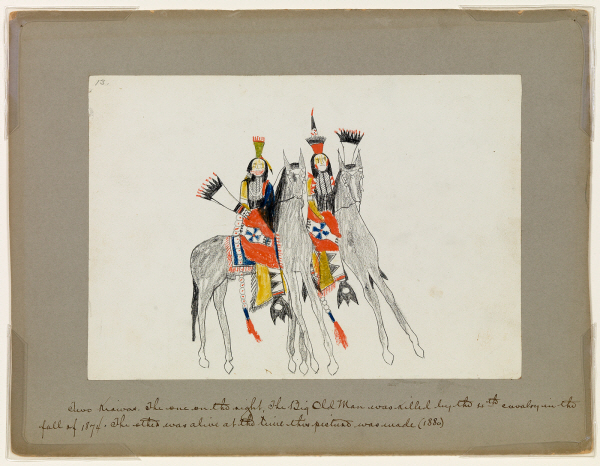 13.
Two Kiowas. The one on the right, The Big Old Man was killed by the 10th cavalry in the
fall of 1874. The other was alive at the time this picture was made (1880)